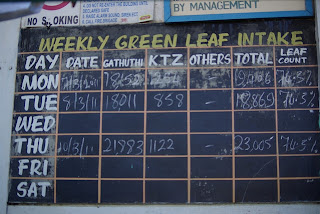 NO SMOKING
BY MANAGEMENT
WEEKLY GREEN LEAF INTAKE
DAY DATE GATHUTHI KTZ OTHERS TOTAL LEAF COUNT
MON
TUE 8/3/11 18011 858 – 18,869 74.5%
WED
THU 10/3/11 21883 1122 – 23,005 74.5%
FRI
SAT